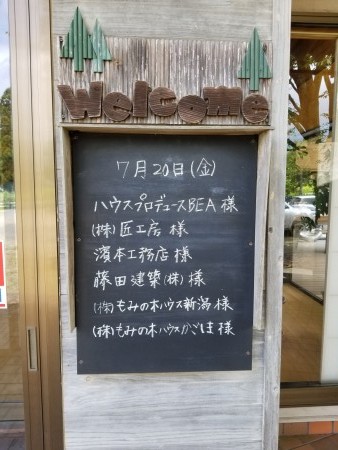 Welcome
7月20日(金)
ハウスプロデュースBEA 様
(株)匠工房 様
濱本工務店 様
藤田建築(株) 様
(株)もみの木ハウス新潟 様
(株)もみの木ハウスかごしま 様